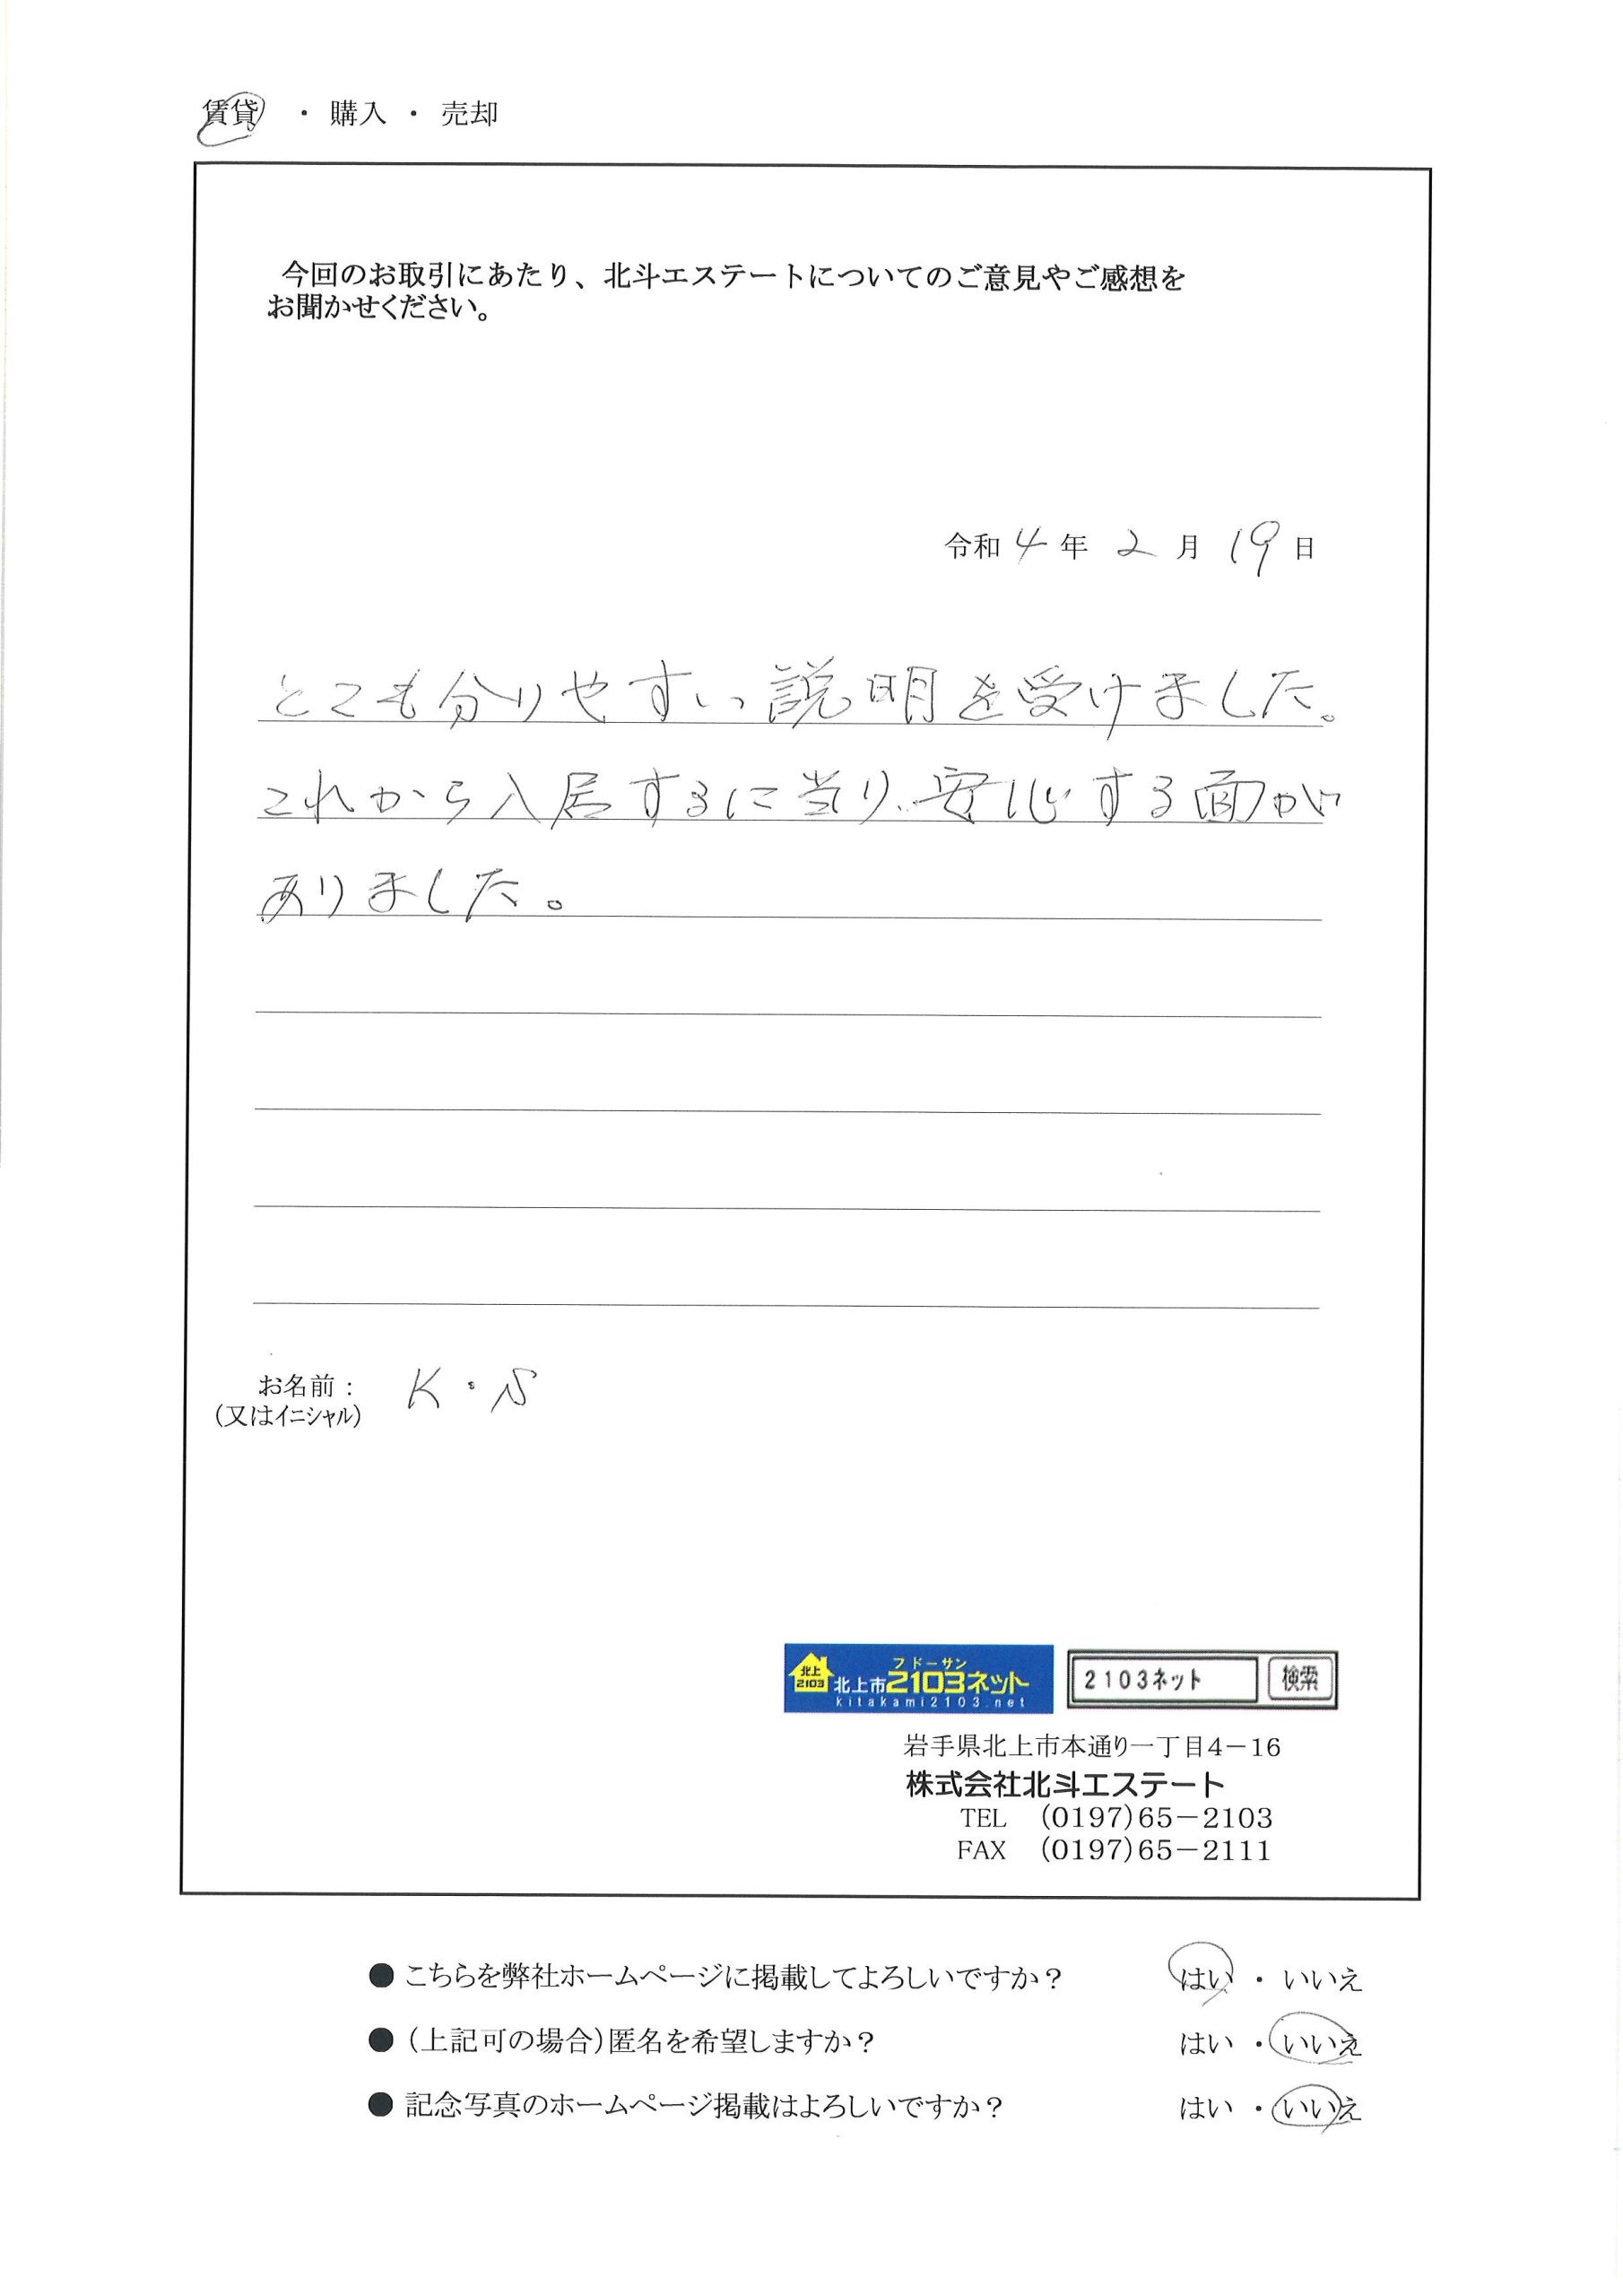 賃貸 ・ 購入 ・ 売却
今回のお取引にあたり、北斗エステートについてのご意見やご感想を
お聞かせください。
令和 4 年 2 月 19 日
とても分りやすい説明を受けました。
これから入居するに当り、安心する面が
ありました。
お名前： K・S
（又はイニシャル）
北上 2103 北上市2103ネット フドーサン kitakami2103.net
2103ネット 検索
岩手県北上市本通り一丁目4－16
株式会社北斗エステート
TEL （0197）65－2103
FAX （0197）65－2111
● こちらを弊社ホームページに掲載してよろしいですか？ はい ・ いいえ
● （上記可の場合）匿名を希望しますか？ はい ・ いいえ
● 記念写真のホームページ掲載はよろしいですか？ はい ・ いいえ